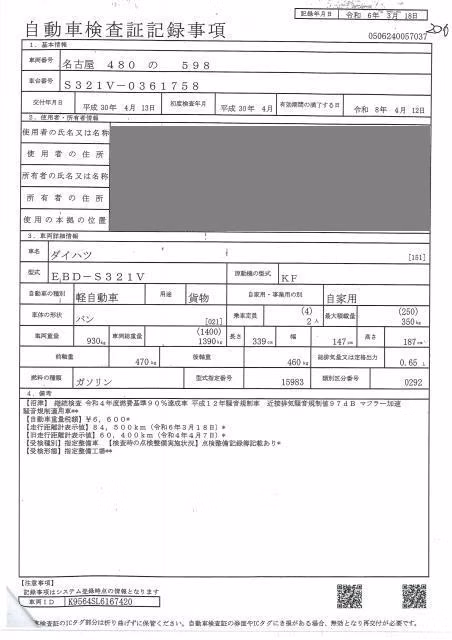 記録年月日 令和 6年 3月 18日
自動車検査証記録事項
0506240057037
206
1．基本情報
車両番号 名古屋 480 の 598
車台番号 S321V-0361758
交付年月日 平成 30年 4月 13日 初度検査年月 平成 30年 4月 有効期間の満了する日 令和 8年 4月 12日
2．使用者・所有者情報
使用者の氏名又は名称
使用者の住所
所有者の氏名又は名称
所有者の住所
使用の本拠の位置
3．車両詳細情報
車名 ダイハツ [151]
型式 EBD-S321V 原動機の型式 KF
自動車の種別 軽自動車 用途 貨物 自家用・事業用の別 自家用
車体の形状 バン [021] 乗車定員 (4) 2人 最大積載量 (250) 350kg
車両重量 930kg 車両総重量 (1400) 1390kg 長さ 339cm 幅 147cm 高さ 187cm
前軸重 470kg 後軸重 460kg 総排気量又は定格出力 0.65L
燃料の種類 ガソリン 型式指定番号 15983 類別区分番号 0292
4．備考
【沼津】 継続検査 令和4年度燃費基準90％達成車 平成12年騒音規制車 近接排気騒音規制値97dB マフラー加速
騒音規制適用車**
【自動車重量税額】¥6,600*
【走行距離計表示値】84,500km（令和6年3月18日）*
【旧走行距離計表示値】60,400km（令和4年4月7日）*
【受検種別】指定整備車 【検査時の点検整備実施状況】点検整備記録簿記載あり*
【受検形態】指定整備工場**
【注意事項】
記録事項はシステム登録時点の情報となります
車両ID K9564SL6167420
車検査証のICタグ部分は折り曲げずに保管ください。自動車検査証の修復やICタグにき損がある場合、無効となり再交付が必要です。